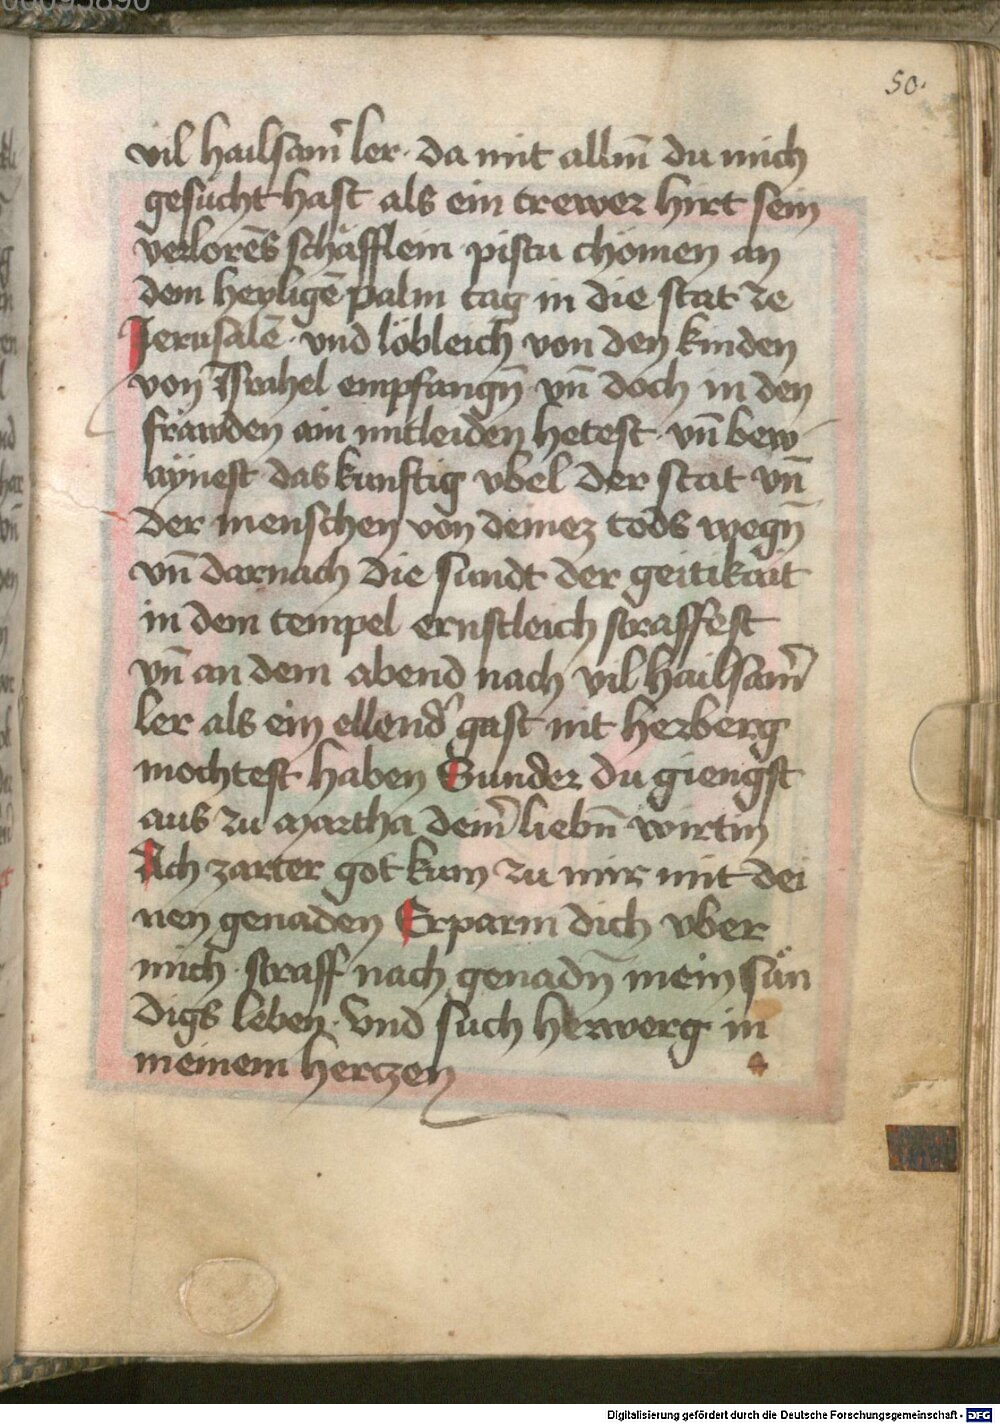 50.
vil hailsam̄ ler · da mit allm̄ du mich
gesucht hast als ein trewer hirt sein
verlorēs schäfflein pistu chömen an
dem heyligē palm tag in die stat ze
Jerusalē · vnd löbleich von den kinden
von Israhel empfangn̄ vn̄ doch in den
fräwden ain mitleiden hetest · vn̄ bew
aynest das kunftig vbel der stat vn̄
der menschen von deinez tods wegn̄
vn̄ darnach die sundt der geitikait
in dem tempel ernstleich straffest
vn̄ an dem abend nach vil hailsam̄
ler als ein ellend' gast nit herberg
mochtest haben Sunder du giengst
aus zu Martha dein̄ liebn̄ wirtin
Ach zarter got kum zu mir mit dei
nen genaden Erparm dich vber
mich · straff nach genadn̄ mein sün
digs leben · Vnd such herwerg in
meinem herczen
Digitalisierung gefördert durch die Deutsche Forschungsgemeinschaft - DFG